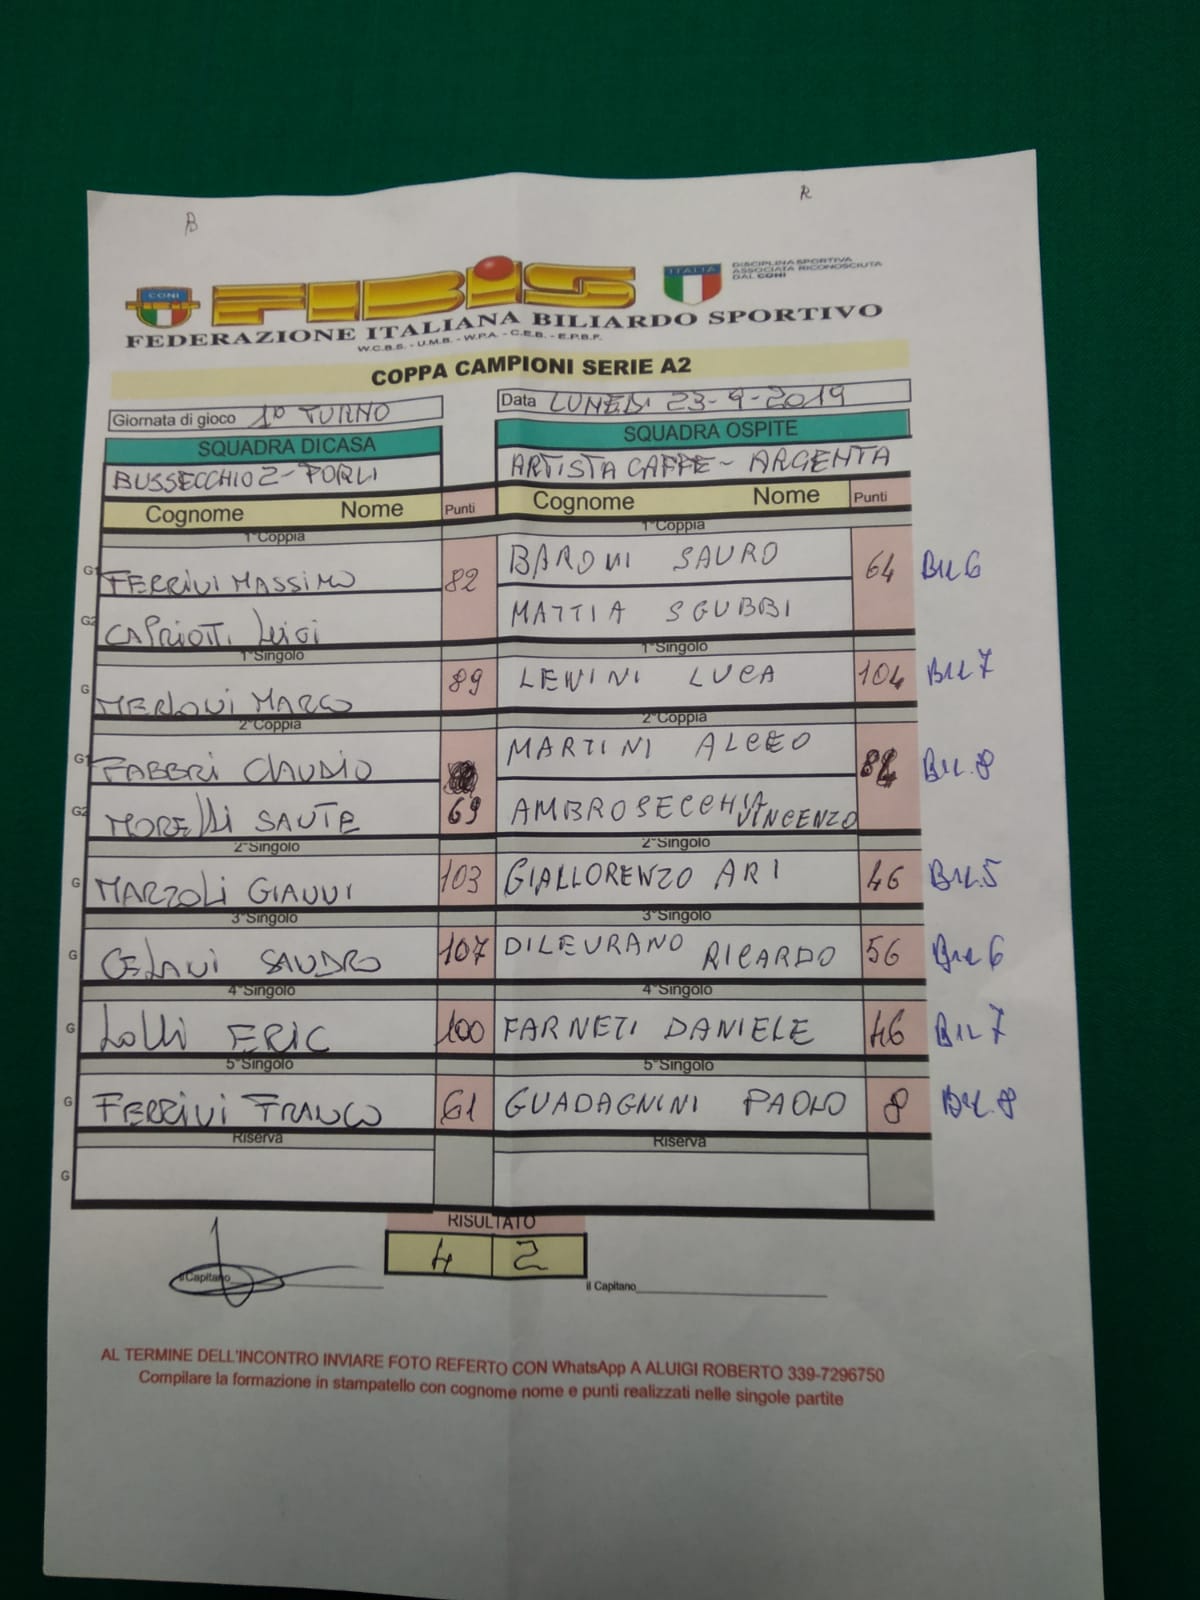 B R
CONI FIBiS ITALIA DISCIPLINA SPORTIVA
ASSOCIATA RICONOSCIUTA
DAL CONI
FEDERAZIONE ITALIANA BILIARDO SPORTIVO
W.C.B.S. - U.M.B. - W.P.A. - C.E.B. - E.P.B.F.
COPPA CAMPIONI SERIE A2
Giornata di gioco 1° TURNO Data LUNEDI 23-9-2019
SQUADRA DI CASA SQUADRA OSPITE
BUSSECCHIO 2 - FORLI ARTISTA CAFFE - ARGENTA
Cognome Nome Punti Cognome Nome Punti
1°Coppia 1°Coppia
G1 FERRINI MASSIMO 82 BARONI SAURO 64 Bil 6
G2 CAPRIOTTI LUIGI MATTIA SGUBBI
1°Singolo 1°Singolo
G MERLONI MARCO 89 LENINI LUCA 104 Bil 7
2°Coppia 2°Coppia
G1 FABBRI CLAUDIO MARTINI ALCEO Bil. 8
G2 MORELLI SANTE 69 AMBROSECCHIA VINCENZO
2°Singolo 2°Singolo
G MARZOLI GIANNI 103 GIALLORENZO ARI 46 Bil. 5
3°Singolo 3°Singolo
G CELANI SANDRO 107 DILEURANO RICARDO 56 Bil 6
4°Singolo 4°Singolo
G LOLLI ERIC 100 FARNETI DANIELE 46 Bil 7
5°Singolo 5°Singolo
G FERRINI FRANCO 61 GUADAGNINI PAOLO 8 Bil. 8
Riserva Riserva
G
RISULTATO
4 2
il Capitano il Capitano
AL TERMINE DELL'INCONTRO INVIARE FOTO REFERTO CON WhatsApp A ALUIGI ROBERTO 339-7296750
Compilare la formazione in stampatello con cognome nome e punti realizzati nelle singole partite